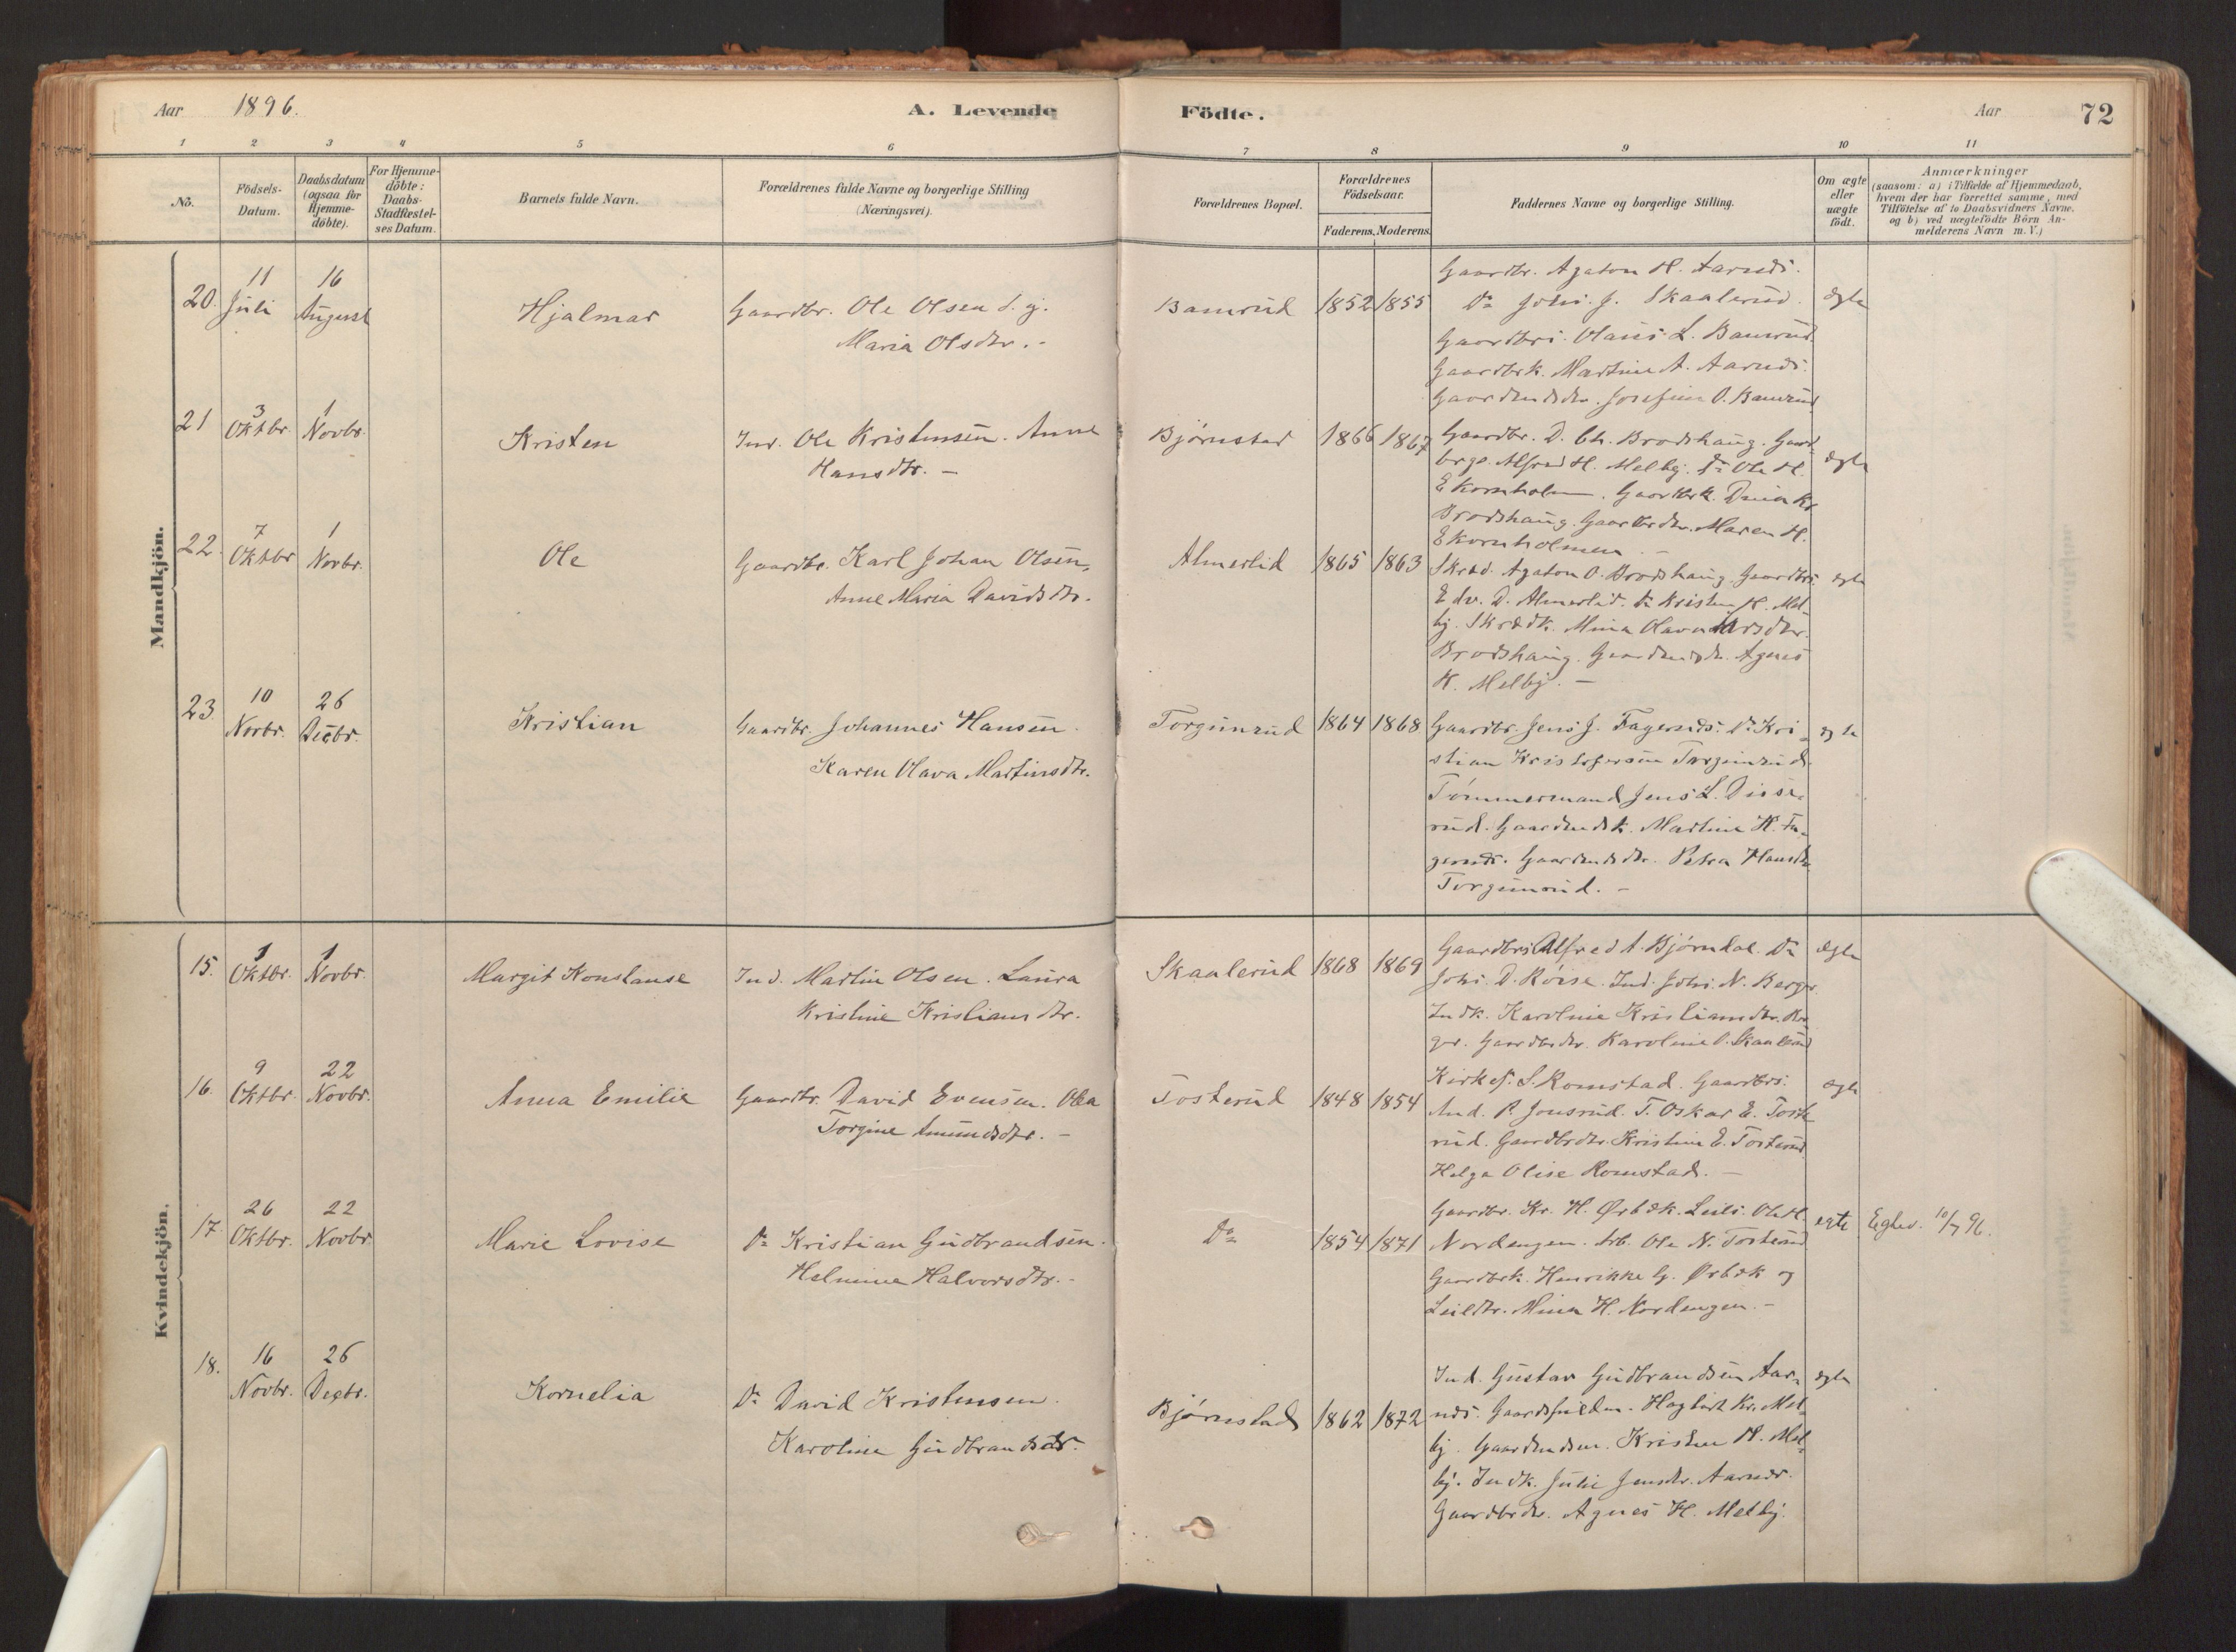 Aar 1896.
A. Levende Födte.
Aar 72
1 2 3 4 5 6 7 8 9 10 11
No.
Födsels-
Datum.
Daabsdatum
(ogsaa for
Hjemme-
döbte).
For Hjemme-
döbte:
Daabs-
Stadfæstel-
ses Datum.
Barnets fulde Navn.
Forældrenes fulde Navne og borgerlige Stilling
(Næringsvei).
Forældrenes Bopæl.
Forældrenes
Födselsaar.
Faderens. Moderens.
Faddernes Navne og borgerlige Stilling.
Om ægte
eller
uægte
födt.
Anmærkninger
(saasom: a) i Tilfælde af Hjemmedaab,
hvem der har forrettet samme, med
Tilföielse af to Daabsvidners Navne.
og b) ved uægtefödte Börn An-
melderens Navn m. V.)
Mandkjön.
20. 11 Juli 16 August
Hjalmar
Gaardbr. Ole Olsen s. g.
Maria Olsdtr. -
Bamrud 1852 1855
Gaardbr. Agaton H. Aarnds.
Do Johs. J. Skaalerud.
Gaardbrs. Olaus L. Bamrud.
Gaardbrk. Martine A. Aarnds.
Josefine O. Bamrud
ægte
21 3 Oktbr. 1 Novbr.
Kristen
Ind. Ole Kristensen. Anne
Hansdtr. -
Bjørnstad 1866 1867
Gaardbr. D. Ch. Brodshaug. Gaard
Alfred H. Melby. Do Ole H.
Ekornholm. Gaardbrk.
Brodshaug. Gaardbrdtr. Maren H.
Ekornholmen. -
ægte
22. 7 Oktbr 1 Novbr.
Ole
Gaardbr. Karl Johan Olsen,
Anne Maria Davidsdtr.
Almerlid 1865 1863
Skræd. Agaton O. Brodshaug. Gaardbrs.
Edv. D. Almerlid. Do Kristen H. Mel-
by. Skrædk. Mina Olava Larsdtr.
Brodshaug. Agnes
H. Melby. -
ægte
23. 10 Novbr. 26 Decbr.
Kristian
Gaardbr. Johannes Hansen.
Karen Olava Martinsdtr.
Torgunrud 1864 1868
Gaardbr. Jens J. Fagernds. Do Kri-
stian Kristofersen Torgunrud.
Tømmermand Jens L. Diise-
rud. Martine H. Fa-
gernds. Petra Hansdtr.
Torgunrud. -
ægte
Kvindekjön.
15. 1 Oktbr. 1 Novbr.
Margit Konstanse
Ind. Martin Olsen. Laura
Kristine Kristiansdtr.
Skaalerud 1868 1869
Gaardbrs. Alfred A. Bjørndal. Do
Johs. D. Røise. Ind. Johs. N. Berger.
Indk. Karoline Kristiansdtr. Ber-
ger. Gaardbrdtr. Karoline O. Skaalerud
ægte
16. 9 Oktbr. 22 Novbr.
Anna Emilie
Gaardbr. David Evensen. Olea
Torgine Amundsdtr. -
Tosterud 1848 1854
Kirkes. S. Romstad. Gaardbrs.
And. P. Jonsrud. T. Oskar E. Toste
rud. Gaardbrdtr. Kristine E. Tosterud.
Helga Olise Romstad. -
ægte
17. 26 Oktbr. 22 Novbr.
Marie Lovise
Do Kristian Gudbrandsen.
Helmine Halvorsdtr. -
Do 1854 1871
Gaardbr. Kr. H. Ørbæk. Leils. Ole H.
Nordengen. Arb. Ole N. Tosterud
Gaardbrk. Henrikke G. Ørbæk og
Leildtr. Mina H. Nordengen. -
egte
Eghev. 10/7 96.
18. 16 Novbr. 26 Decbr.
Kornelia
Do David Kristensen.
Karoline Gudbrandsdtr.
Bjørnstad 1862 1872
Ind. Gustav Gudbrandsen Aar-
nds. Hagbart Kr. Mel-
by. Kristen H. Mel-
by. Indk. Julie Jensdtr. Aarnds.
Gaardbrdtr. Agnes H. Melby.
ægte